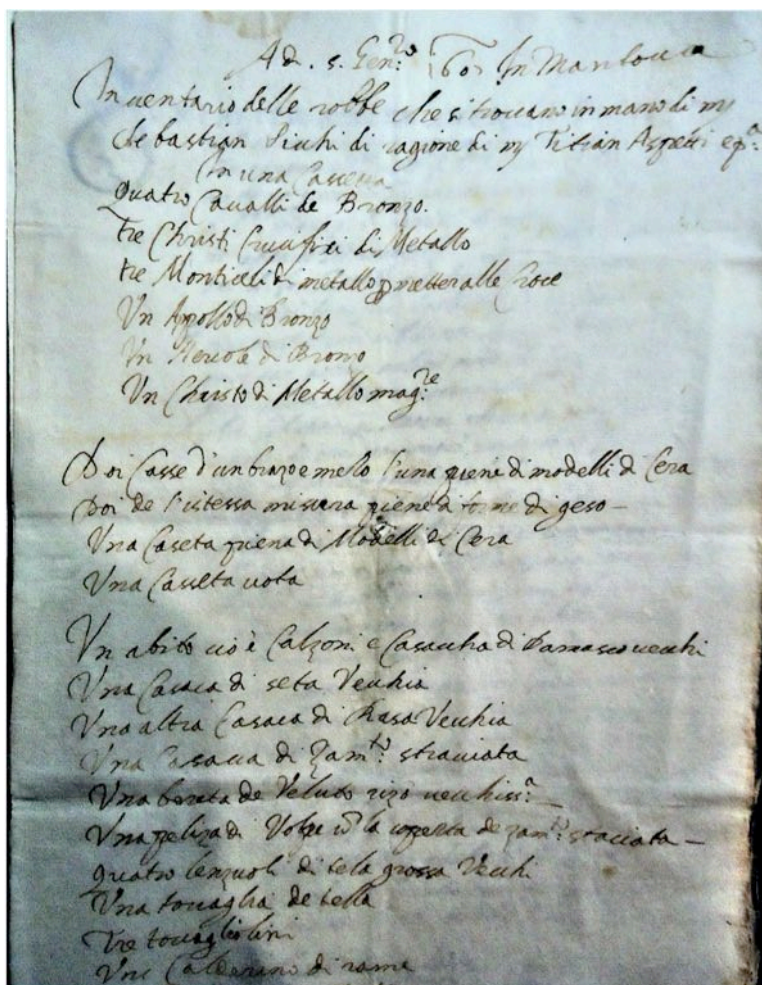 Ad. 5. Gen.ro 160 In Mantoua
Inuentario delle robbe che si trouano in mano di m.
Sebastian Sicchi di ragione di m. Titian Aspetti
In una Cassetta
Quatro Caualli de Bronzo.
tre Christi Crucifixi di Metallo
tre Monticeli di metallo p metter alle Croce
Un Appollo di Bronzo
Un Hercole di Bronzo
Un Christo di Metallo mag.re
Doi Casse d'un brazo e mezo l'una piene di modelli di Cera
Doi de l'istessa misura piene di forme di geso –
Una Caseta piena di Modelli di Cera
Una Caseta uota
Un abito cio è Calzoni e Casacha di Damasco uecchi
Una Casaca di seta Vecchia
Una altra Casaca di Rasa Vecchia
Una Casaca di zam.to straciata
Una bereta de Veluto rizo uecchiss.a
Una peliza di Volpe cõ la coperta de zam.to straciata –
quatro lenzuoli di tela grossa Vechi
Una touaglia de tella
Tre touagliolini
Una Calderino di rame